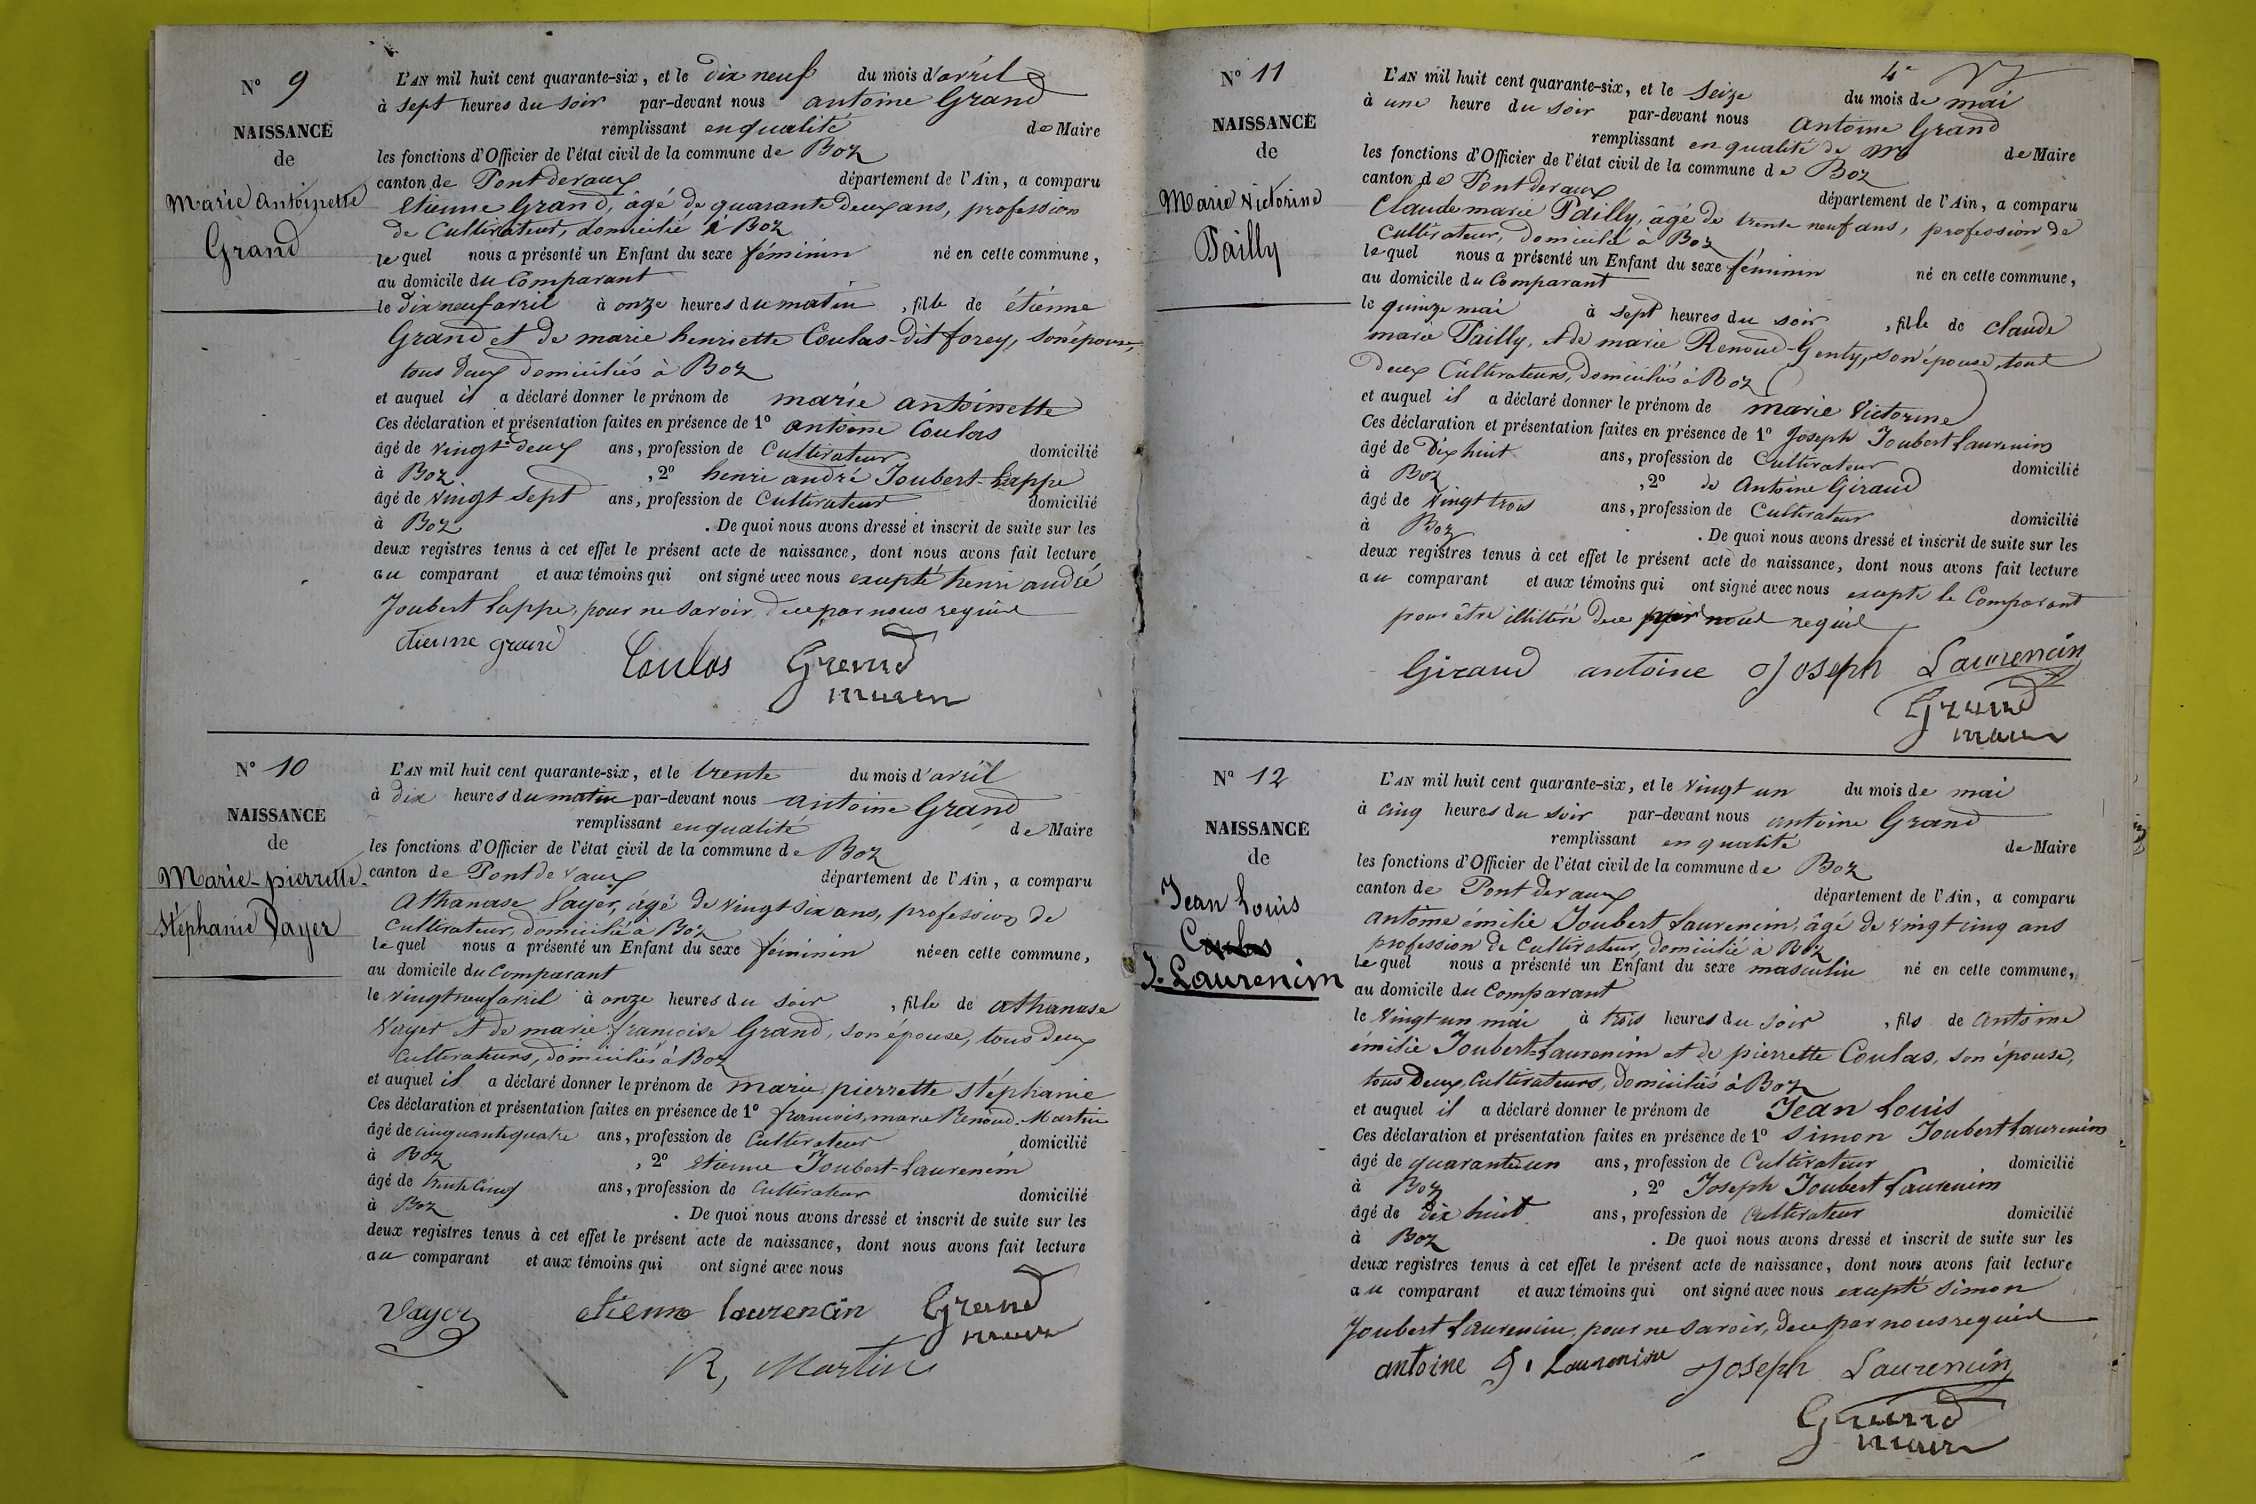 N° 9
NAISSANCE
de
Marie Antoinette
Grand
L'AN mil huit cent quarante-six, et le dix neuf du mois d'avril
à sept heures du soir par-devant nous antoine Grand
remplissant en qualité de Maire
les fonctions d'Officier de l'état civil de la commune de Boz
canton de Pontdevaux département de l'Ain, a comparu
Etienne Grand, âgé de quarante deux ans, profession
de Cultivateur, domicilié à Boz
le quel nous a présenté un Enfant du sexe féminin né en cette commune,
au domicile du Comparant
le dix neuf avril à onze heures du matin, fille de étienne
Grand et de marie henriette Coulas-dit forey, son épouse,
tous deux domiciliés à Boz
et auquel il a déclaré donner le prénom de marie antoinette
Ces déclaration et présentation faites en présence de 1° antoine Coulas
âgé de vingt-deux ans, profession de Cultivateur domicilié
à Boz, 2° henri andré Joubert-Lappe
âgé de vingt sept ans, profession de Cultivateur domicilié
à Boz. De quoi nous avons dressé et inscrit de suite sur les
deux registres tenus à cet effet le présent acte de naissance, dont nous avons fait lecture
au comparant et aux témoins qui ont signé avec nous excepté henri andré
Joubert Lappe, pour ne savoir, de ce par nous requis
Etienne grand Coulas Grand
maire
N° 10
NAISSANCE
de
Marie-pierrette
Stéphanie Vayer
L'AN mil huit cent quarante-six, et le trente du mois d'avril
à dix heures du matin par-devant nous antoine Grand
remplissant en qualité de Maire
les fonctions d'Officier de l'état civil de la commune de Boz
canton de Pont de vaux département de l'Ain, a comparu
Athanase Vayer, âgé de vingt six ans, profession de
Cultivateur, domicilié à Boz
le quel nous a présenté un Enfant du sexe féminin née en cette commune,
au domicile du Comparant
le vingt neuf avril à onze heures du soir, fille de athanase
Vayer et de marie françoise Grand, son épouse, tous deux
Cultivateurs, domiciliés à Boz
et auquel il a déclaré donner le prénom de marie pierrette stéphanie
Ces déclaration et présentation faites en présence de 1° francois marie Renoud-Martin
âgé de cinquante quatre ans, profession de Cultivateur domicilié
à Boz, 2° etienne Joubert-Laurenein
âgé de trente cinq ans, profession de Cultivateur domicilié
à Boz. De quoi nous avons dressé et inscrit de suite sur les
deux registres tenus à cet effet le présent acte de naissance, dont nous avons fait lecture
au comparant et aux témoins qui ont signé avec nous
Vayer etienne laurencin Grand
maire
R, Martin
4e
N° 11
NAISSANCE
de
Marie Victorine
Pailly
L'AN mil huit cent quarante-six, et le seize du mois de mai
à une heure du soir par-devant nous Antoine Grand
remplissant en qualité de de Maire
les fonctions d'Officier de l'état civil de la commune de Boz
canton de Pontdevaux département de l'Ain, a comparu
Claude marie Pailly, âgé de trente neuf ans, profession de
Cultivateur, domicilié à Boz
le quel nous a présenté un Enfant du sexe féminin né en cette commune,
au domicile du Comparant
le quinze mai à sept heures du soir, fille de claude
marie Pailly, et de marie Renoud-Genty, son épouse, tout
deux Cultivateurs, domiciliés à Boz
et auquel il a déclaré donner le prénom de marie Victorine
Ces déclaration et présentation faites en présence de 1° Joseph Joubert Laurenein
âgé de Dix huit ans, profession de Cultivateur domicilié
à Boz, 2° de Antoine Giraud
âgé de vingt trois ans, profession de Cultivateur domicilié
à Boz. De quoi nous avons dressé et inscrit de suite sur les
deux registres tenus à cet effet le présent acte de naissance, dont nous avons fait lecture
au comparant et aux témoins qui ont signé avec nous excepté le Comparant
pour être illittéré de ce par nous requis
Giraud antoine Joseph Laurencin
Grand
maire
N° 12
NAISSANCE
de
Jean Louis
Coulas
J. Laurenein
L'AN mil huit cent quarante-six, et le vingt un du mois de mai
à cinq heures du soir par-devant nous antoine Grand
remplissant en qualité de Maire
les fonctions d'Officier de l'état civil de la commune de Boz
canton de Pont devaux département de l'Ain, a comparu
antoine émilie Joubert Laurenein, âgé de vingt cinq ans
profession de Cultivateur, domicilié à Boz
le quel nous a présenté un Enfant du sexe masculin né en cette commune,
au domicile du Comparant
le vingt un mai à trois heures du soir, fils de antoine
émilie Joubert-Laurenein et de pierrette Coulas, son épouse,
tous deux Cultivateurs, domiciliés à Boz
et auquel il a déclaré donner le prénom de Jean Louis
Ces déclaration et présentation faites en présence de 1° simon Joubert Laurenein
âgé de quarante-un ans, profession de Cultivateur domicilié
à Boz, 2° Joseph Joubert Laurenein
âgé de dix huit ans, profession de Cultivateur domicilié
à Boz. De quoi nous avons dressé et inscrit de suite sur les
deux registres tenus à cet effet le présent acte de naissance, dont nous avons fait lecture
au comparant et aux témoins qui ont signé avec nous excepté simon
Joubert Laurenein, pour ne savoir, de ce par nous requis
antoine J. Laurencin Joseph Laurencin
Grand
maire